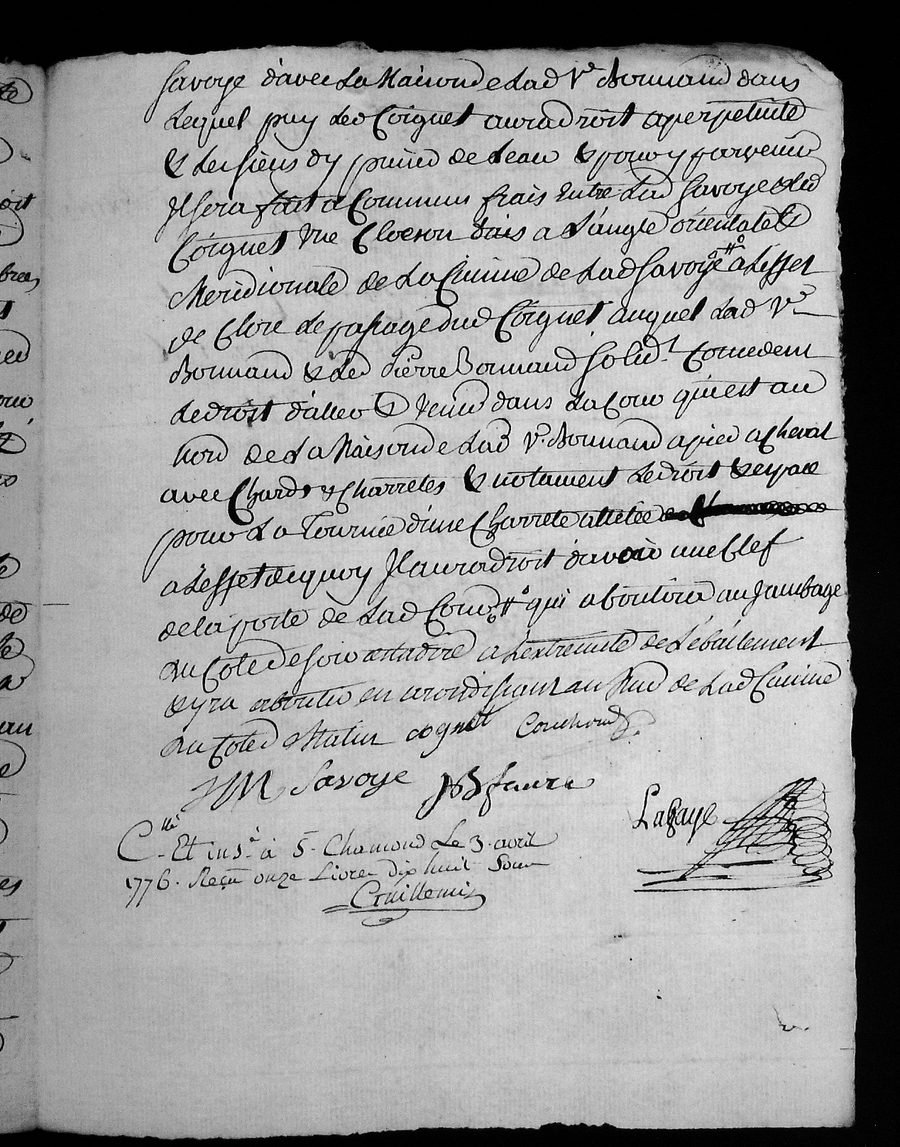 Savoye d'avec La Maison de Lad Ve Bonnand dans
Lequel puy Led Coignet aura droit a perpetuité
& Les siens dy puiser de Leau & pour y parvenir
Il sera fait a Communs frais Entre Lad Savoye & Led
Coignet Une Cloeson dais a L'angle orientale &
Meridionale de La Cuisine de Lad Savoye #o a Leffet
de Clore Le passage dud Coignet, auquel Lad Ve
Bonnand & Led Pierre Bonnand solidt Concedent
Le droit d'aller & Venir dans La Cour qui est au
Nord de La Maison de Lad Ve Bonnand a pied a Cheval
avec Chards & Charretes & notament Le droit & espace
pour La Tournée d'une Charrete attelée
a Leffet de quoy Il aura droit d'avoir une Clef
de la porte de Lad Cour #o qui aboutira au Jambage
du Coté de soir cestadire a L'extremité de L'ébaîllement
& yra aboutir en arondissant au Pied de Lad Cuisine
du Coté d Matin cognet Couchoud
JM Savoye JB faure
Lafaye
C-llé Et insé à St Chamond Le 3 avril
1776. Reçu onze Livres dix huit sous